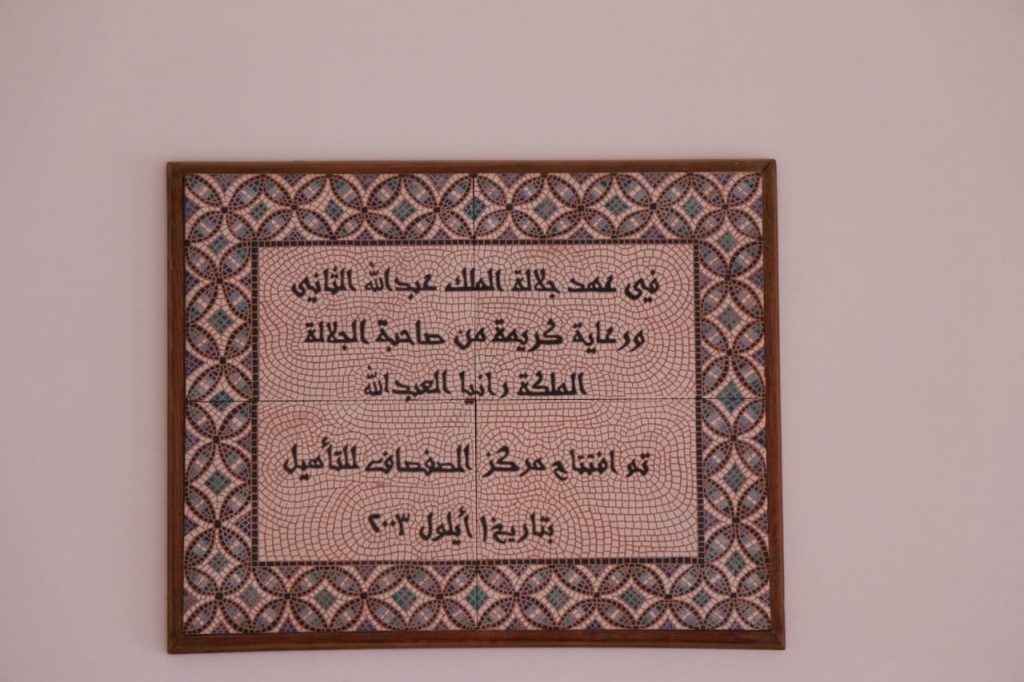 في عهد جلالة الملك عبدالله الثاني
ورعاية كريمة من صاحبة الجلالة
الملكة رانيا العبدالله
تم افتتاح مركز الصفصاف للتأهيل
بتاريخ ١ أيلول ٢٠٠٣